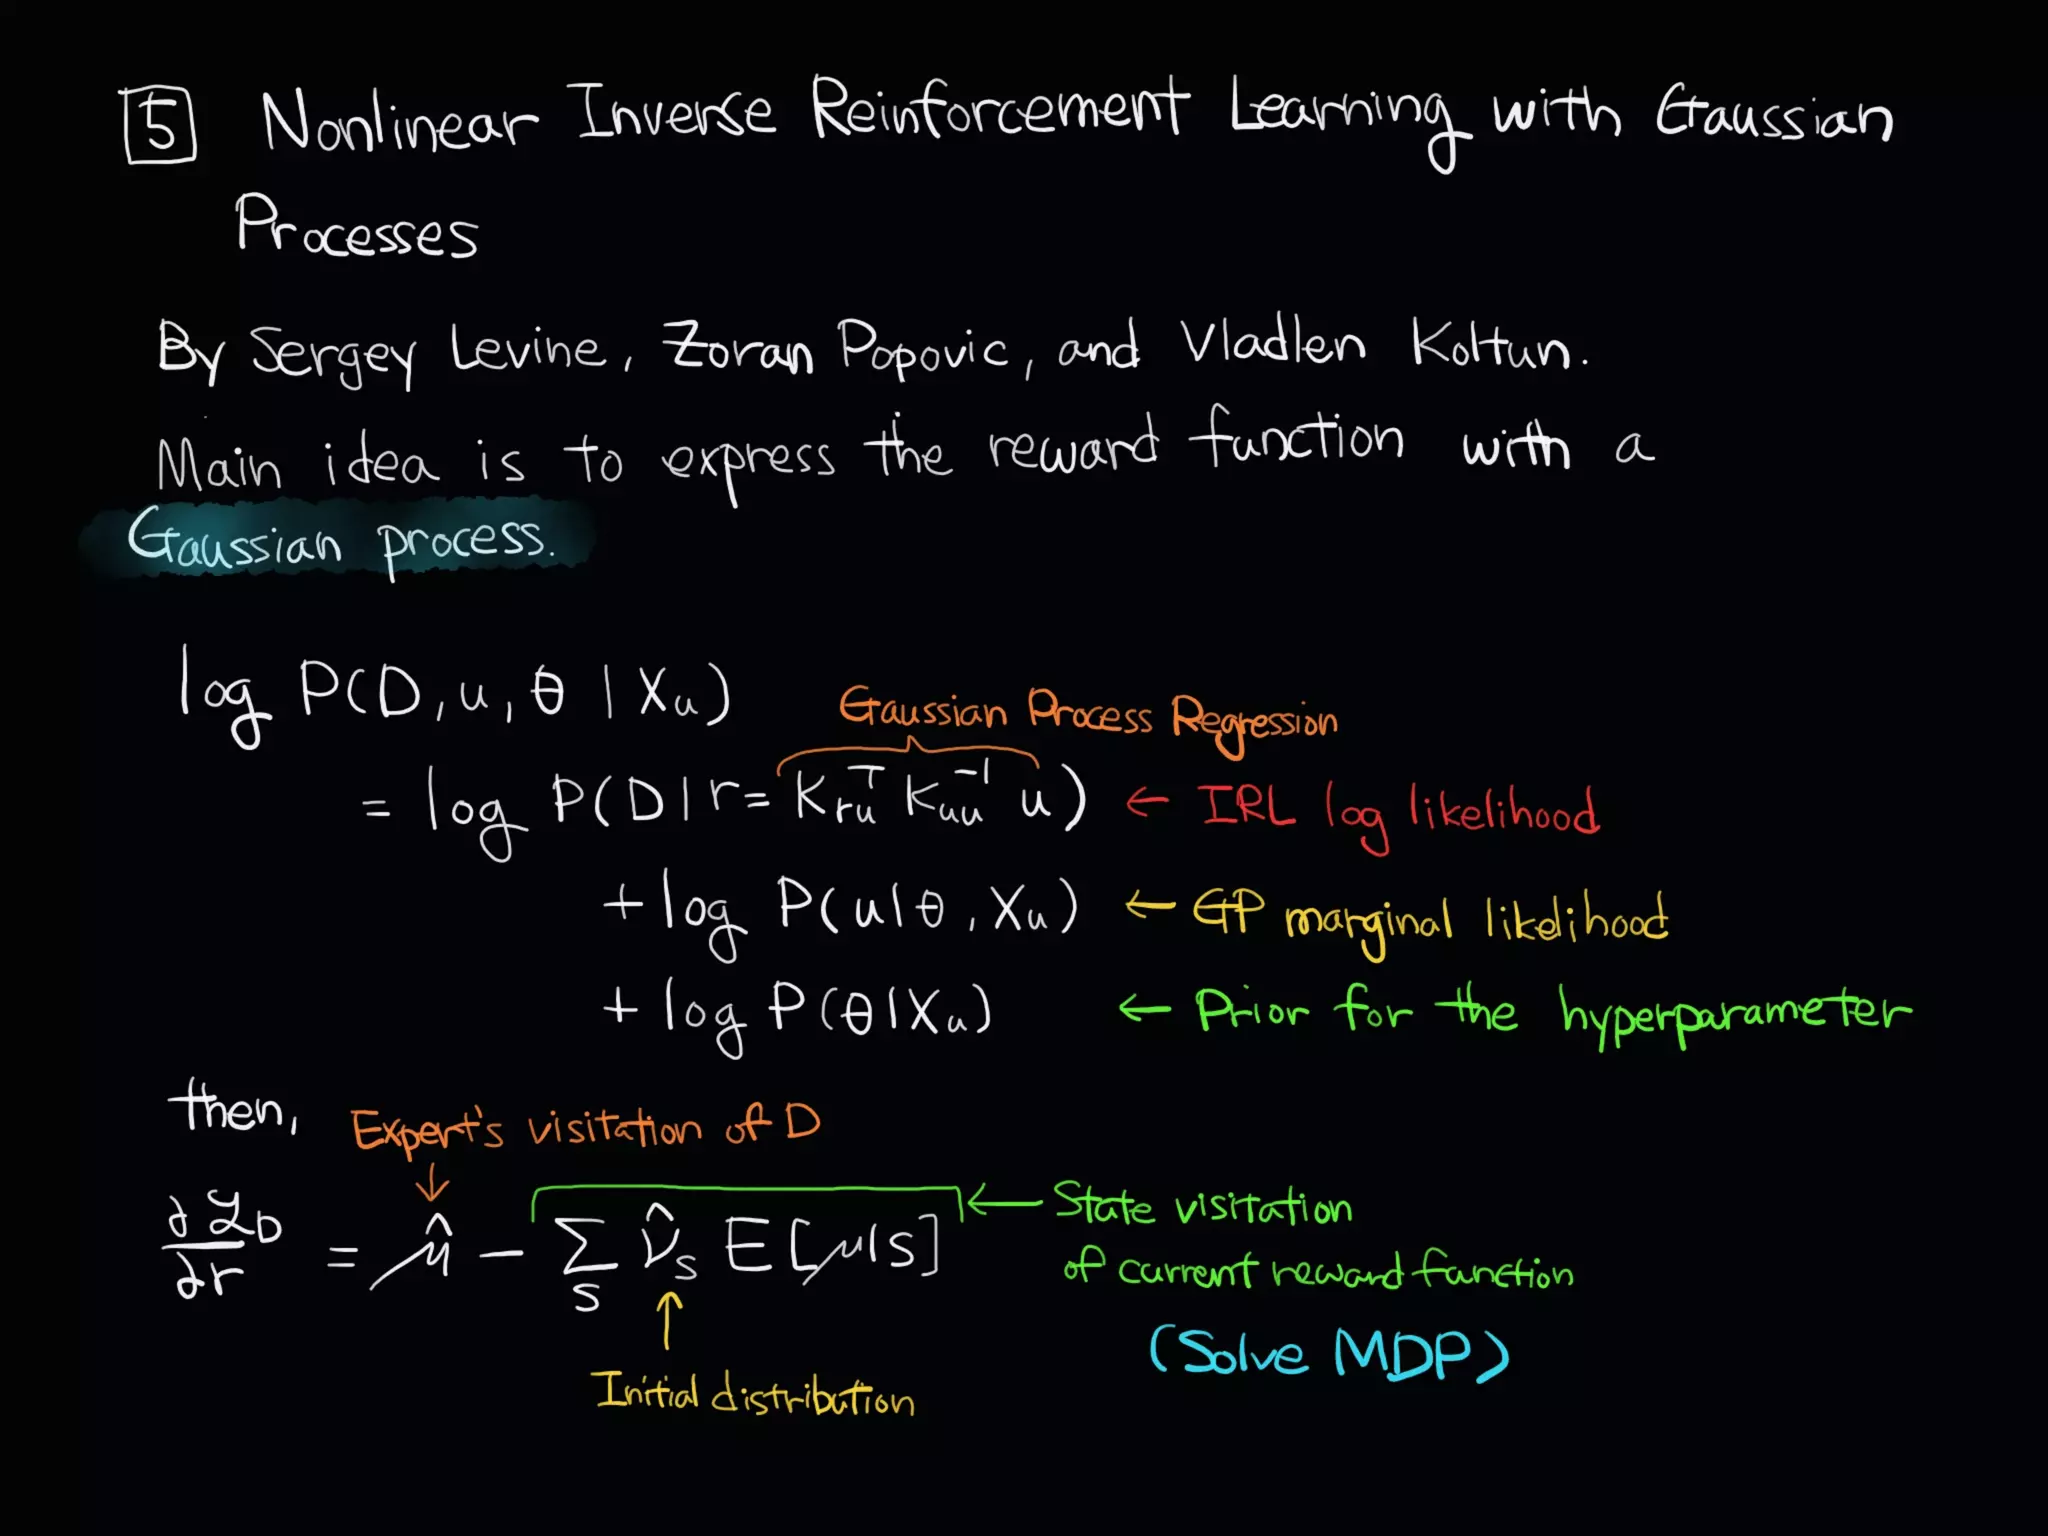 5 Nonlinear Inverse Reinforcement Learning with Gaussian
Processes
By Sergey Levine, Zoran Popovic, and Vladlen Koltun.
Main idea is to express the reward function with a
Gaussian process.
log P(D, u, θ | Xu)
Gaussian Process Regression
= log P(D | r = Kru^T Kuu^-1 u) ← IRL log likelihood
+ log P(u | θ, Xu) ← GP marginal likelihood
+ log P(θ | Xu) ← Prior for the hyperparameter
then,
Expert's visitation of D
↓
∂ℒD/∂r = μ̂ − Σs ν̂s E[μ|s] ← State visitation
of current reward function
↑
Initial distribution
(Solve MDP)